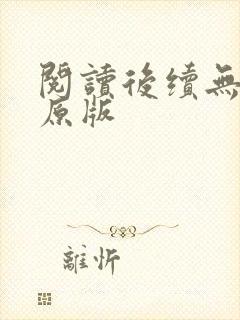 閱讀後續無
原版
離忻